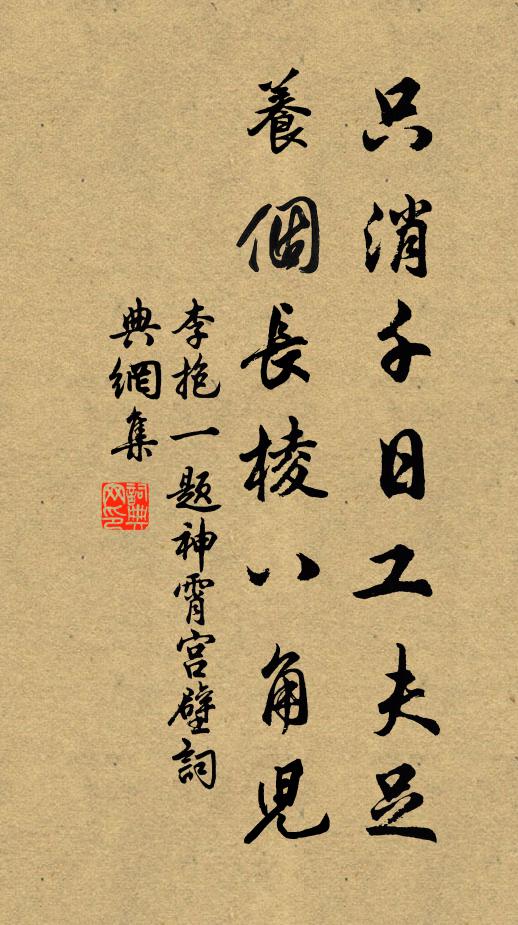 只消千日工夫足
養個長棱八角兒
李抱一題神霄宮壁詞
典網集
詞典網印